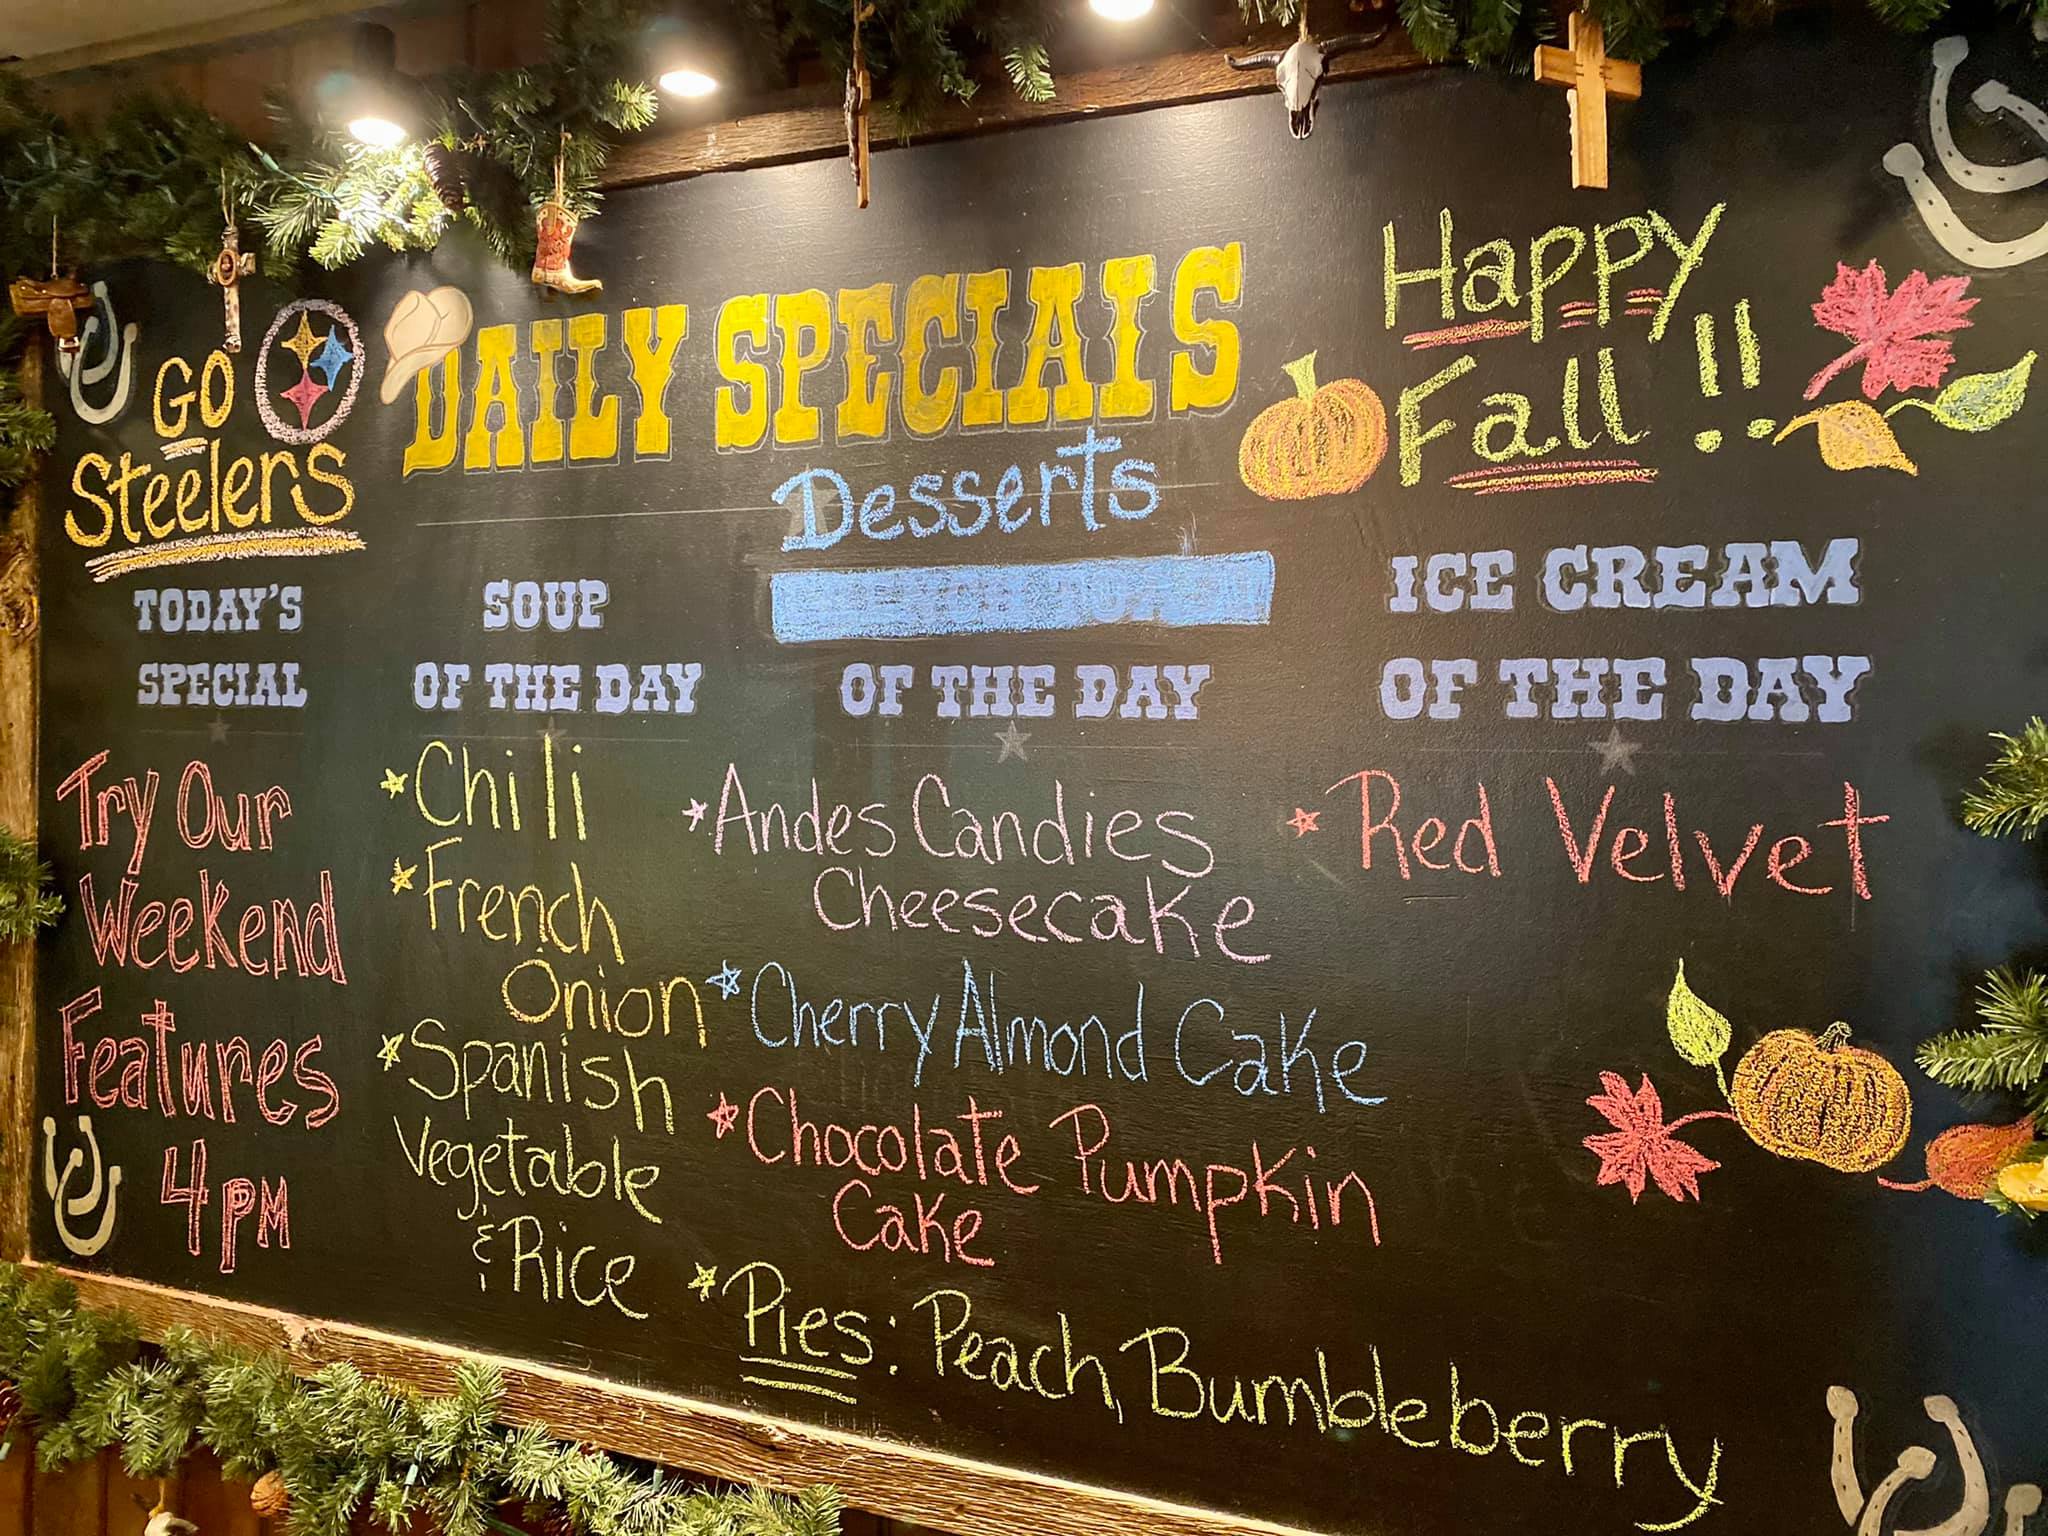 GO
Steelers
DAILY SPECIALS
Happy
Fall !!
Desserts
TODAY'S
SPECIAL
Try Our
Weekend
Features
4 PM
SOUP
OF THE DAY
*Chili
*French
Onion
*Spanish
Vegetable
& Rice
OF THE DAY
*Andes Candies
Cheesecake
*Cherry Almond Cake
*Chocolate Pumpkin
Cake
*Pies: Peach, Bumbleberry
ICE CREAM
OF THE DAY
*Red Velvet